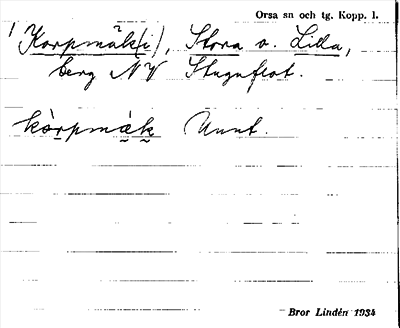 Orsa sn och tg. Kopp. l.
1 Korpmäk(i), Stora o. Lilla,
berg NV Stuguflot.
kòrpmæ̀k Uunt.
Bror Lindén 1934